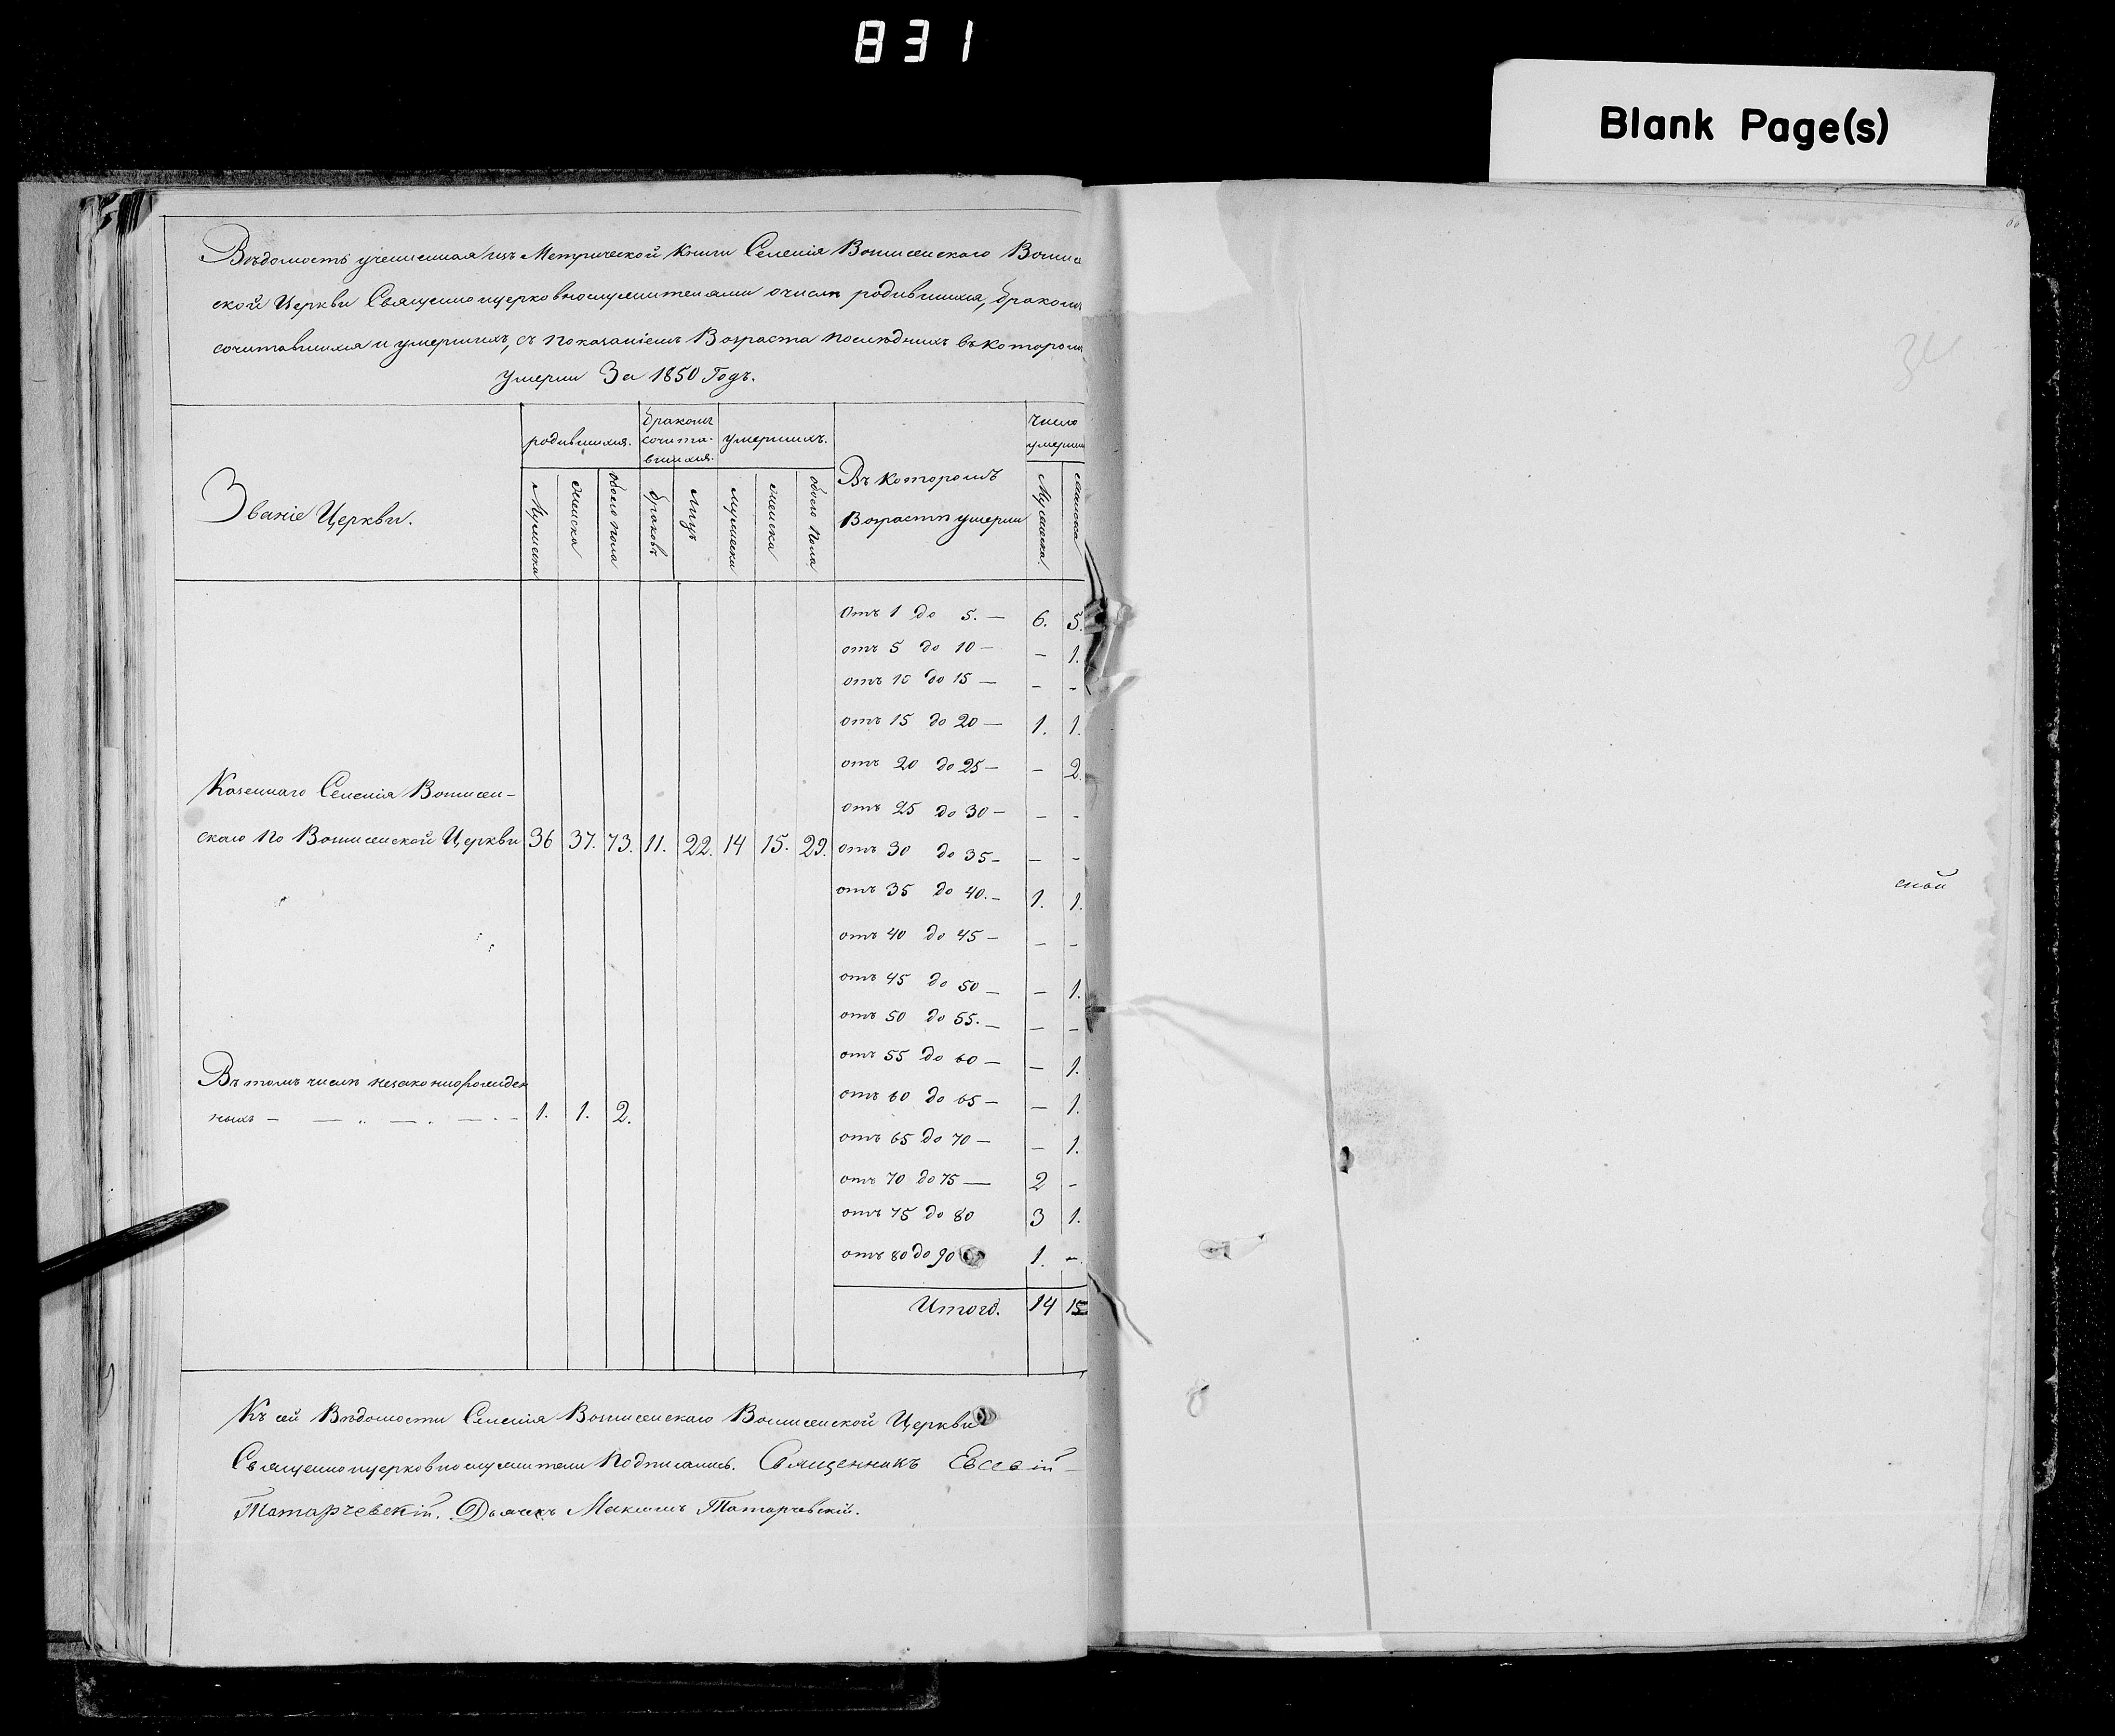 831
Blank Page(s)
Вѣдомость учененная изъ Метрической Книги Селенія
ской Церкви Священноцерковнослужителями о числѣ родившихся, бракомъ
сочитавшихся и умершихъ, съ показаніемъ Возраста послѣднихъ въ которомъ
умерли За 1850 Годъ.
Званіе Церкви.
родившихся.
бракомъ
сочита-
вшихся.
умершихъ.
Въ которомъ
Возрастѣ умерли
Число
умерши
Мужеска
женска
обоего пола
браковъ
лицъ
мужеска
женска
обоего пола
Мужеска.
женска
отъ 1 до 5. — 6. 5.
отъ 5 до 10 — — 1.
отъ 10 до 15 — — -
отъ 15 до 20 — 1. 1.
отъ 20 до 25 — — 2.
отъ 25 до 30 — — -
Казеннаго Селенія
скаго по Церкви 36 37. 73. 11. 22. 14 15. 29. отъ 30 до 35 — — -
отъ 35 до 40. — 1. 1.
отъ 40 до 45 — — -
отъ 45 до 50 — — 1.
отъ 50 до 55. — — —
отъ 55 до 60 — — 1.
Въ томъ числѣ незаконнорожден
ныхъ — — — — 1. 1. 2. отъ 60 до 65 — — 1.
отъ 65 до 70 — — 1.
отъ 70 до 75 — 2 -
отъ 75 до 80 3 1.
отъ 80 до 90 1. -
Итого. 14 15
Къ сей Вѣдомости Селенія Церкви
Священноцерковнослужители Подписались. Священникъ Евсевій
Татарчевскій. Дьячекъ Максимъ Татарчевскій.